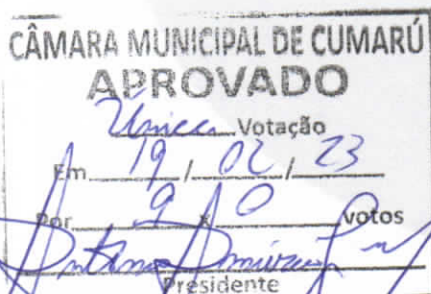 CÂMARA MUNICIPAL DE CUMARÚ
APROVADO
Única Votação
Em 19 / 02 / 23
Por 9 x 0 votos
Presidente